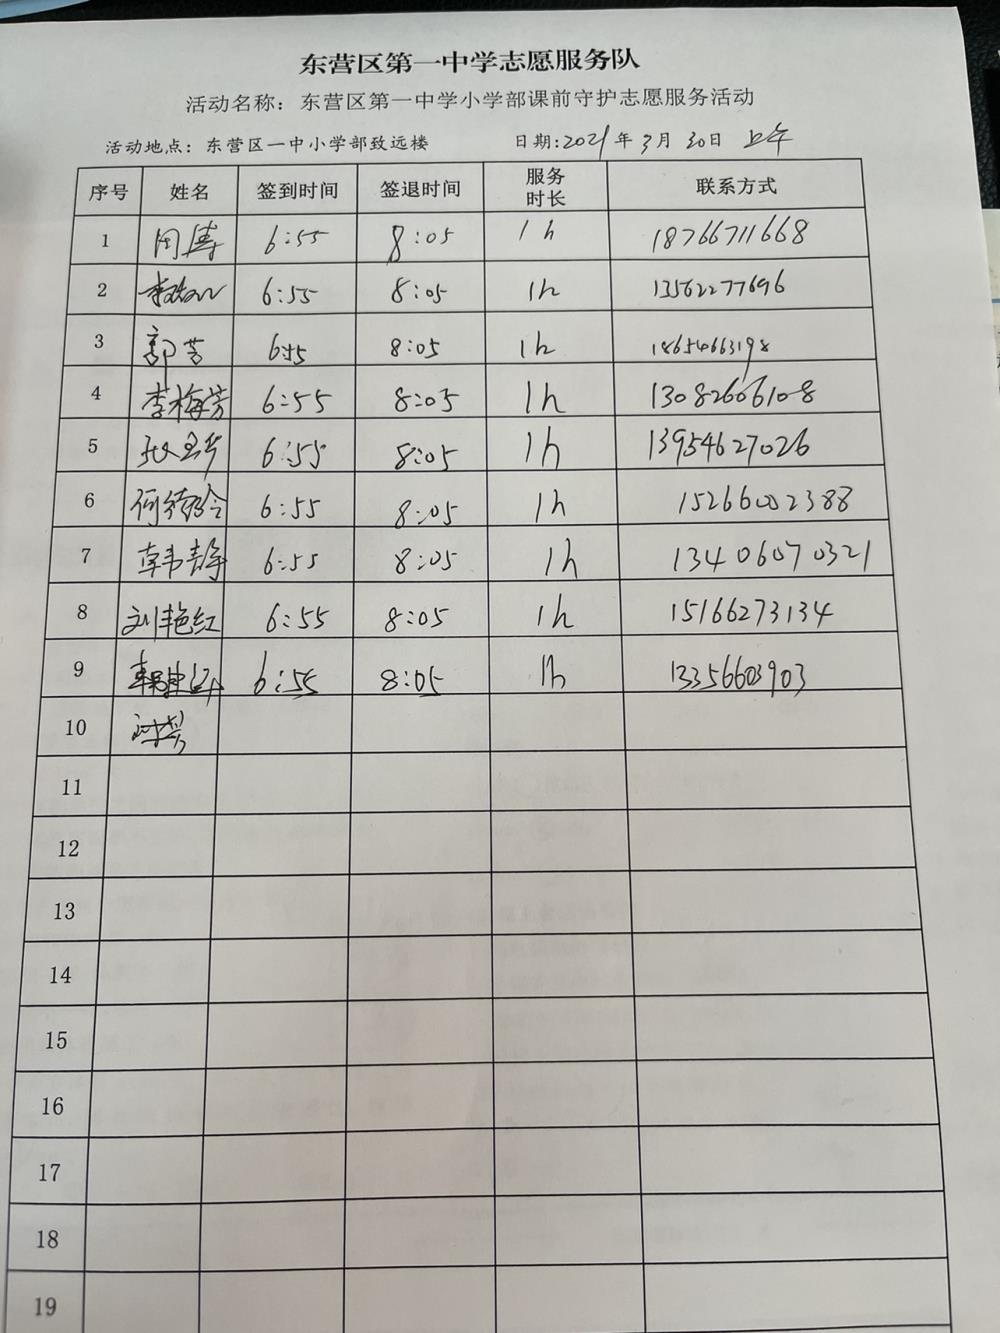 东营区第一中学志愿服务队
活动名称：东营区第一中学小学部课前守护志愿服务活动
活动地点：东营区一中小学部致远楼 日期:2021年3月30日 上午
序号 姓名 签到时间 签退时间 服务时长 联系方式
1 周涛 6:55 8:05 1h 18766711668
2 6:55 8:05 1h 13562277696
3 郭芳 6:55 8:05 1h 18654663198
4 李梅芳 6:55 8:05 1h 13082606108
5 6:55 8:05 1h 13954627026
6 6:55 8:05 1h 15266002388
7 韩静 6:55 8:05 1h 13406070321
8 刘艳红 6:55 8:05 1h 15166273134
9 6:55 8:05 1h 13356603903
10
11
12
13
14
15
16
17
18
19